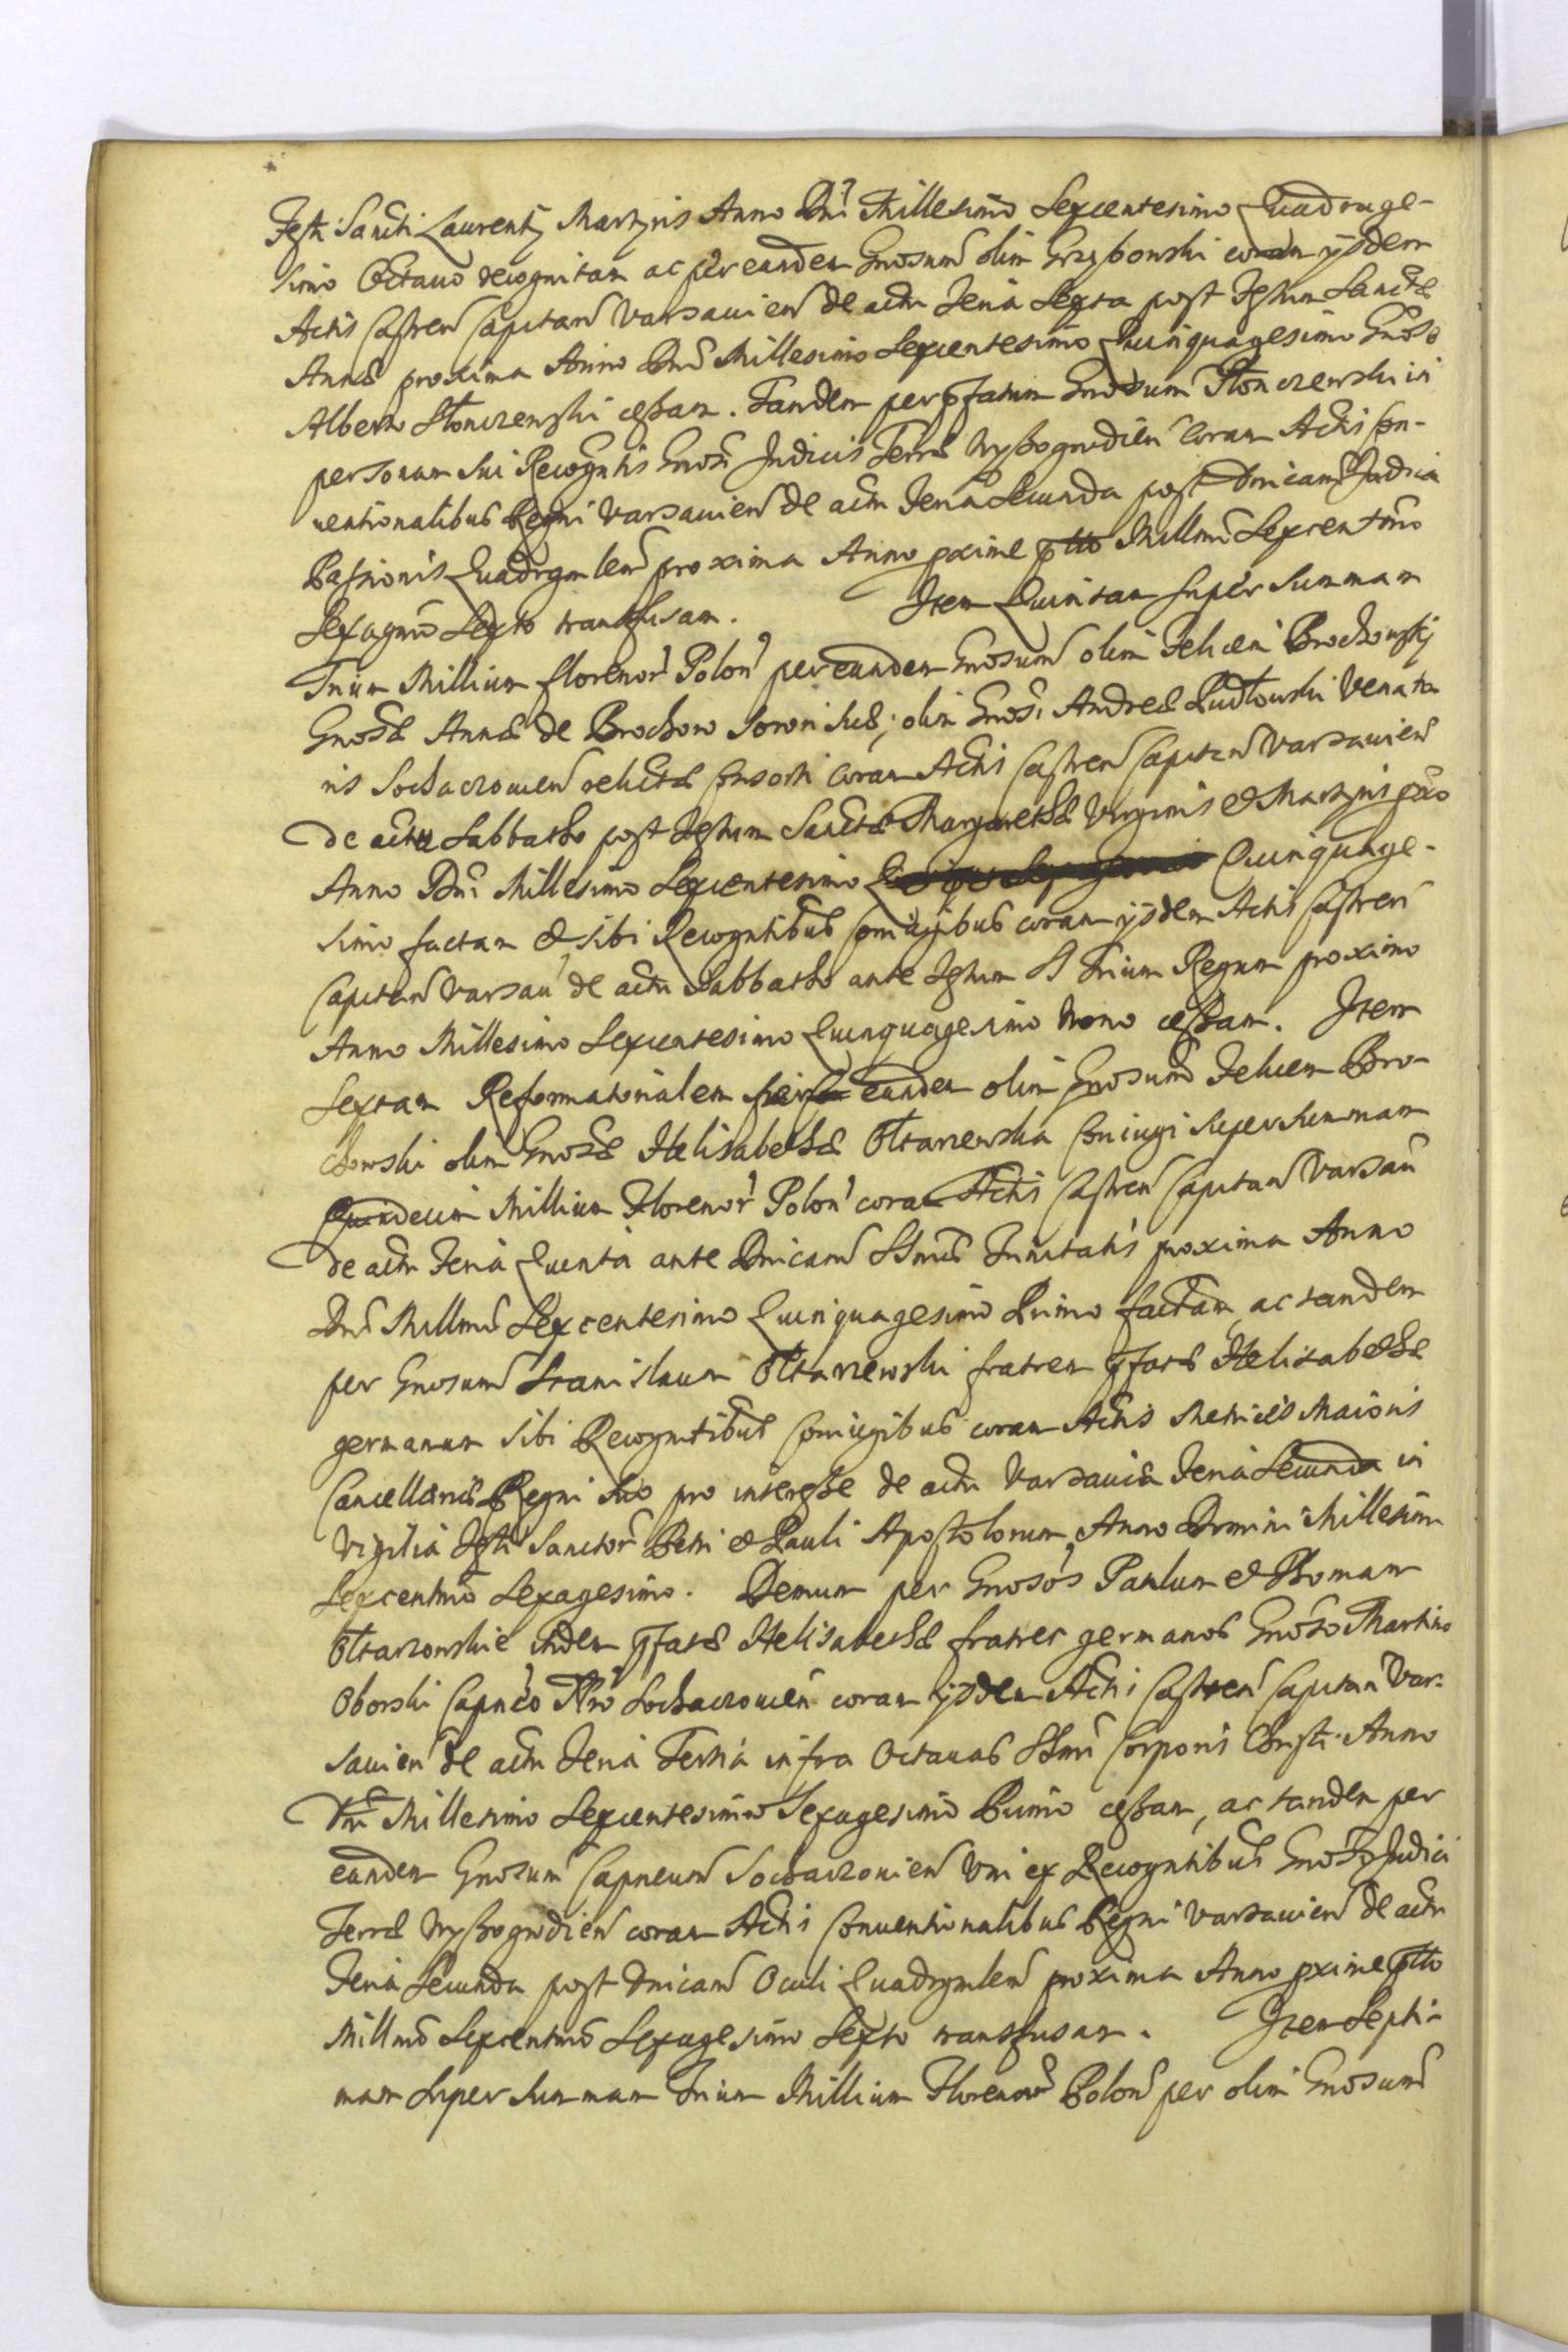 Festi Sancti Laurentÿ Martyris Anno Dni Millesimo Sexcentesimo Quadrage-
simo Octauo recognitam ac per eundem Gnosum olim Grzybowski coram ÿsdem
Actis Castren Capitan Varsauien de actu Feria Sexta post Festum Sanctæ
Annæ proxima Anno Dni Millesimo Sexcentesimo Quinquagesimo Gnoso
Alberto Słonczewski cessam. Tandem per pfatum Gnosum Słonczewski in
personam sui Recogntis Gnosi Judicis Terræ Wyssogrodien coram Actis Con-
uentionalibus Regni Varsauien de actu Feria Secunda post Dnicam Judica
Passionis Quadrgmlem proxima Anno pxime ptto Millmo Sexcentmo
Sexagmo Sexto transfusam. Item Quintam super Summam
Trium Millium florenor Polon per eundem Gnosum olim Felicem Brochowskÿ
Gnosæ Annæ de Brochow Sorori suæ, olim Gnosi Andreæ Rudłowski Venato
ris Sochaczouien relictæ Consorti coram Actis Castren Capitan Varsauien
de actu Sabbatho post Festum Sanctæ Margarethæ Virginis et Martyris pxo
Anno Dni Millesimo Sexcentesimo Quinquage-
simo factam et sibi Recogntibus Coniugibus coram ÿsdem Actis Castren
Capitan Varsau de actu Sabbatho ante Festum SS Trium Regum proximo
Anno Millesimo Sexcentesimo Quinquagesimo Nono cessam. Item
Sextam Reformatorialem per eundem olim Gnosum Felicem Bro-
chowski olim Gnosæ Helisabethæ Ołtarzewska Coniugi super summam
Quindecim Millium Florenor Polon coram Actis Castren Capitan Varsau
de actu Feria Quinta ante Dnicam SSmæ Trinitatis proxima Anno
Dni Millmo Sexcentesimo Quinquagesimo Primo factam, ac tandem
per Gnosum Stanislaum Ołtarzewski fratrem pfatæ Helisabethæ
germanum sibi Recogntibus Coniugibus coram Actis Metrices Maioris
Cancellariæ Regni suo pro interesse de actu Varsauiæ Feria Secunda in
Vigilia Festi Sanctor Petri et Pauli Apostolorum, Anno Domini Millesimo
Sexcentmo Sexagesimo. Demum per Gnosos Paulum et Thomam
Ołtarzowskie itidem pfatæ Helisabethæ fratres germanos Gnoso Martino
Oborski Capneo Nro Sochaczouien coram ÿsdem Actis Castren Capitan Var-
sauien de actu Feria Tertia infra Octauas SSmi Corporis Christi Anno
Dni Millesimo Sexcentesimo Sexagesimo Primo cessam, ac tandem per
eundem Gnosum Capneum Sochaczouien Vni ex Recogntibus Gnoso Judici
Terræ Wyssogrodien coram Actis Conuentionalibus Regni Varsauien de actu
Feria Secunda post Dnicam Oculi Quadrgmlem proxima Anno pxime ptto
Millmo Sexcentmo Sexagesimo Sexto transfusam. Item Septi-
mam super summam Trium Millium Florenor Polon per olim Gnosum